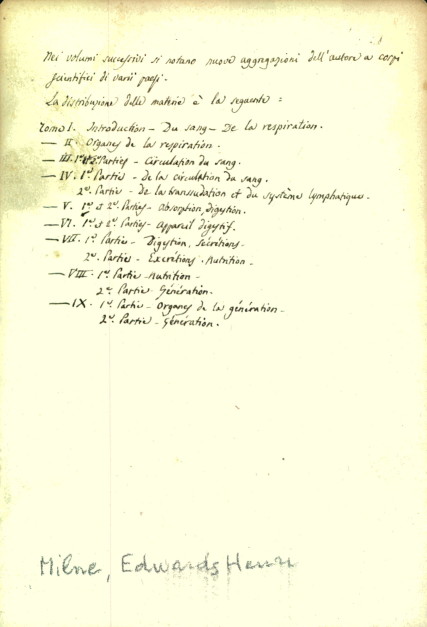 Nei volumi successivi si notano nuove aggregazioni dell'autore a corpi
scientifici di varii paesi.
La distribuzione delle materie è la seguente :
Tomo I. Introduction - Du sang - De la respiration.
— II. Organes de la respiration.
— III. 1re et 2e Parties - Circulation du sang.
— IV. 1re Partie - de la circulation du sang.
2e. Partie - de la transsudation et du système lymphatique.
— V. 1re et 2e Parties - Absorption, digestion.
— VI. 1re et 2e Parties - Appareil digestif.
— VII. 1re Partie - Digestion, Sécrétions.
2e. Partie - Excrétions. Nutrition -
— VIII. 1re Partie - Nutrition -
2e Partie - Génération.
— IX. 1re Partie - Organes de la génération -
2e. Partie - Génération.
Milne, Edwards Henri